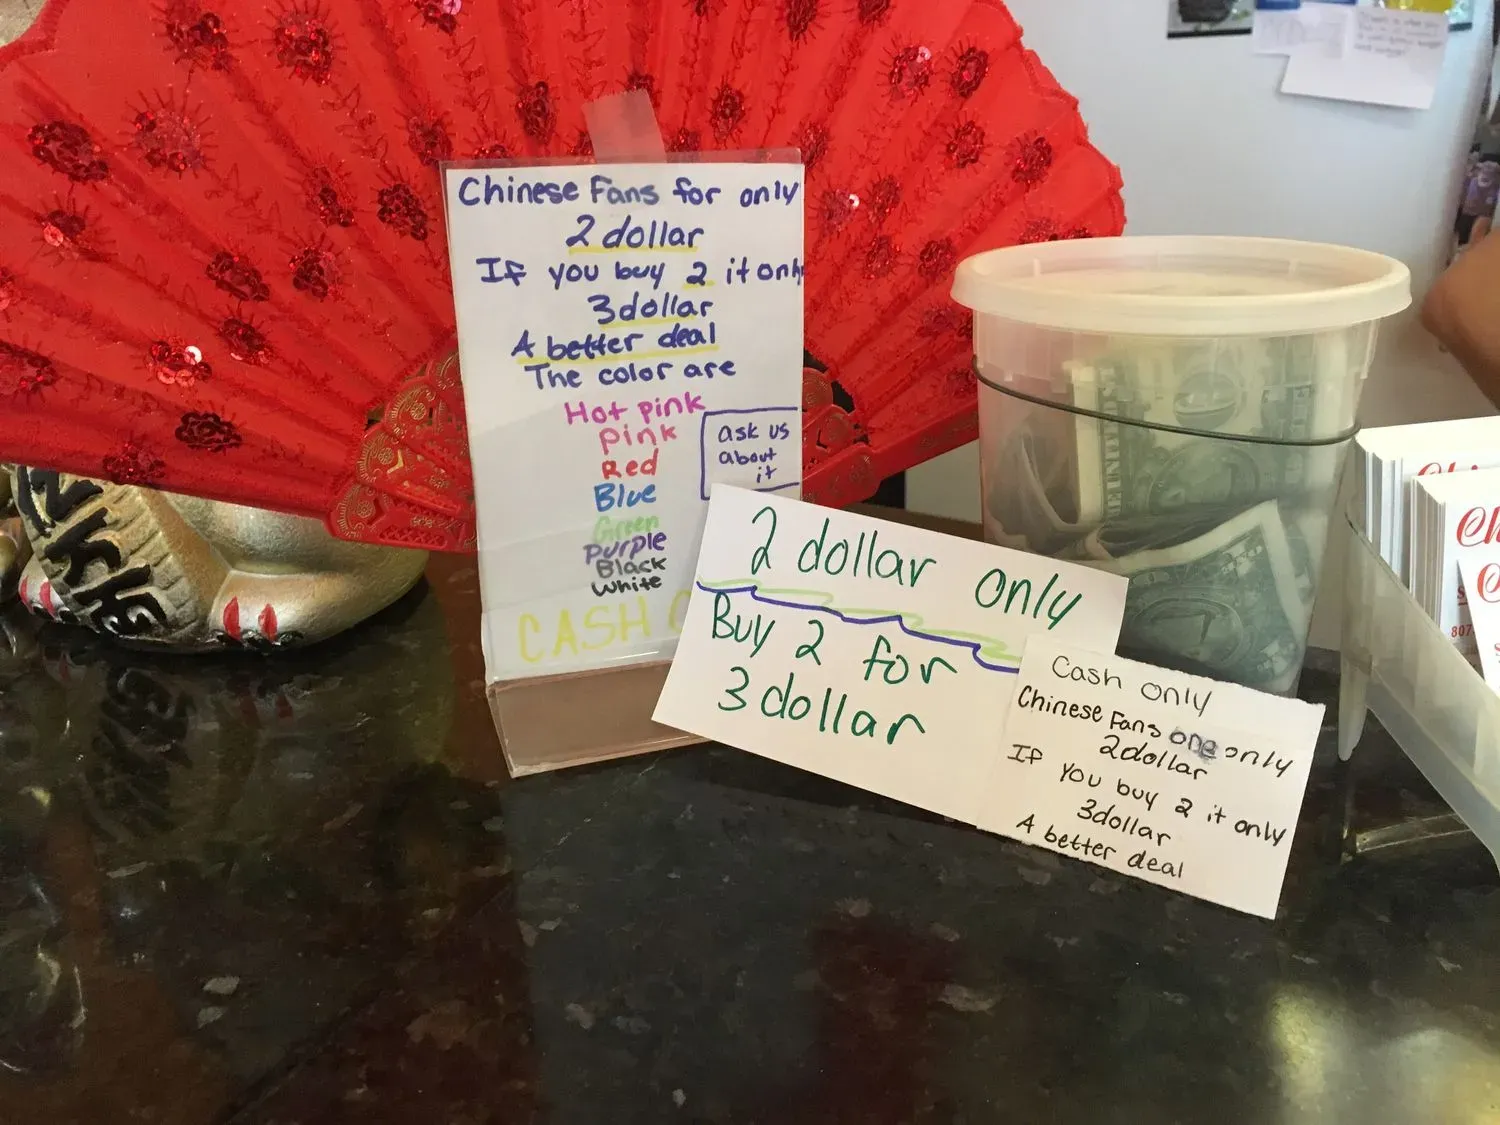 Chinese Fans for only
2 dollar
If you buy 2 it only
3 dollar
A better deal
The color are
Hot pink
pink
Red
Blue
Green
purple
Black
white
ask us
about
it
CASH
2 dollar only
Buy 2 for
3 dollar
Cash only
Chinese Fans one only
2 dollar
If you buy 2 it only
3 dollar
A better deal
807